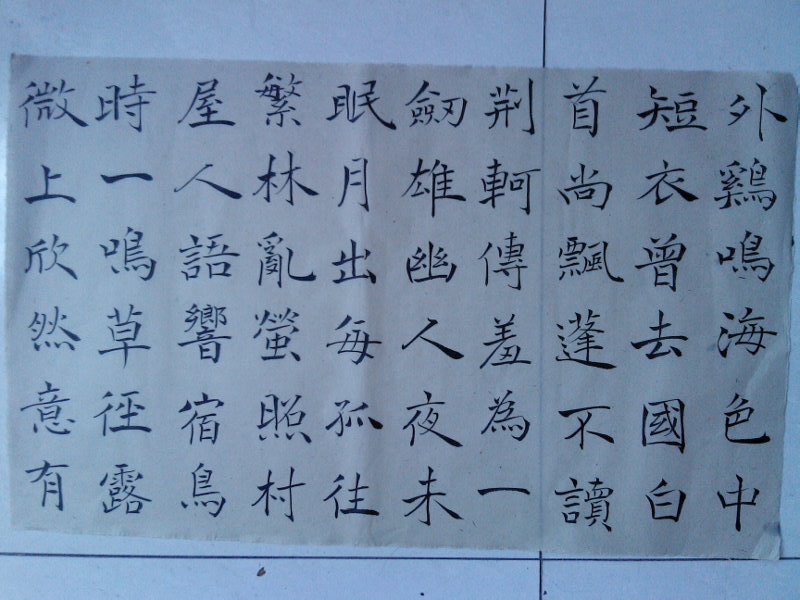 外鷄鳴海色中
短衣曾去國白
首尚飄蓬不讀
荆軻傳羞為一
劒雄幽人夜未
眠月出每孤往
繁林亂螢照村
屋人語響宿鳥
時一鳴草徑露
微上欣然意有